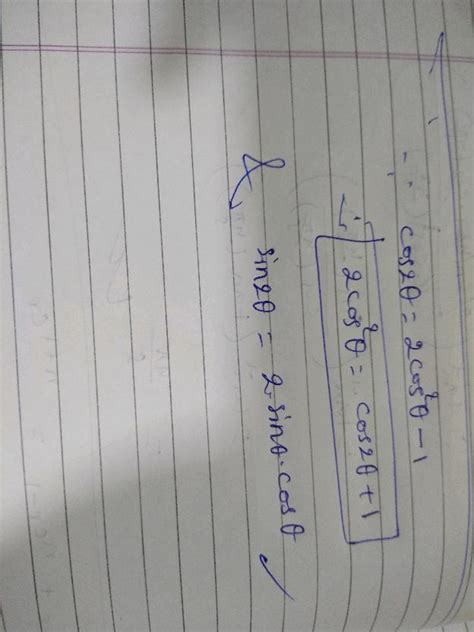 ∵ cos2θ = 2cos²θ - 1
∴ 2cos²θ = cos2θ + 1
& sin2θ = 2.sinθ.cosθ